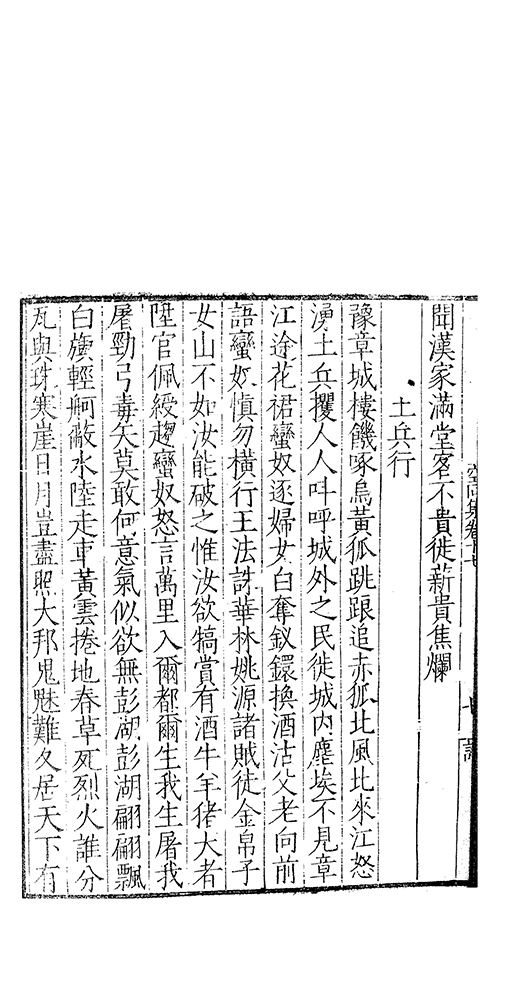 聞漢家滿堂客不貴徙薪貴焦爛
土兵行
豫章城樓饑啄烏黃狐跳踉追赤狐北風北來江怒
湧土兵攫人人叫呼城外之民徙城內塵埃不見章
江途花裙蠻奴逐婦女白奪釵鐶換酒沽父老向前
語蠻奴愼勿橫行王法誅華林姚源諸賊徒金帛子
女山不如汝能破之惟汝欲犒賞有酒牛羊猪大者
陞官佩綬趨蠻奴怒言萬里入爾都爾生我生屠我
屠勁弓毒矢莫敢何意氣似欲無彭湖彭湖翩翩飄
白旗輕舸蔽水陸走車黃雲捲地春草死烈火誰分
瓦與珠寒崖日月豈盡照大邦鬼魅難久居天下有
空同集卷十七